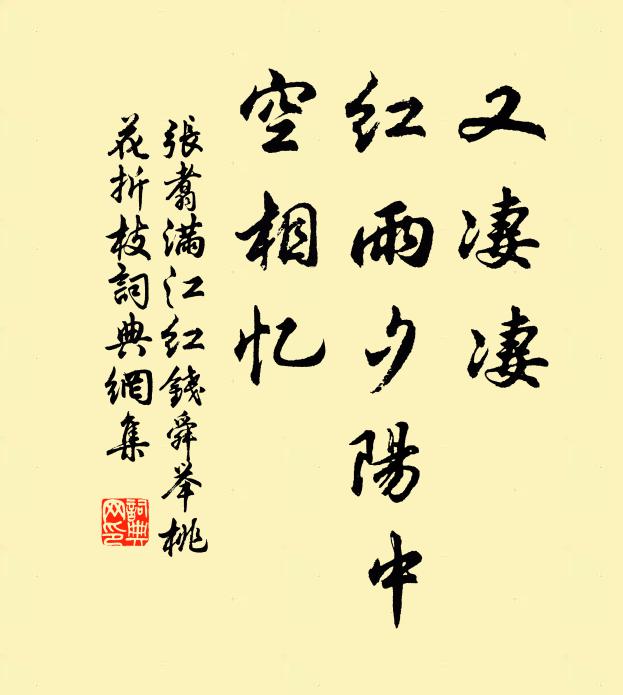 又凄凄
红雨夕陽中
空相忆
張翥满江红錢舜举桃
花折枝詞典網集
詞典
网印